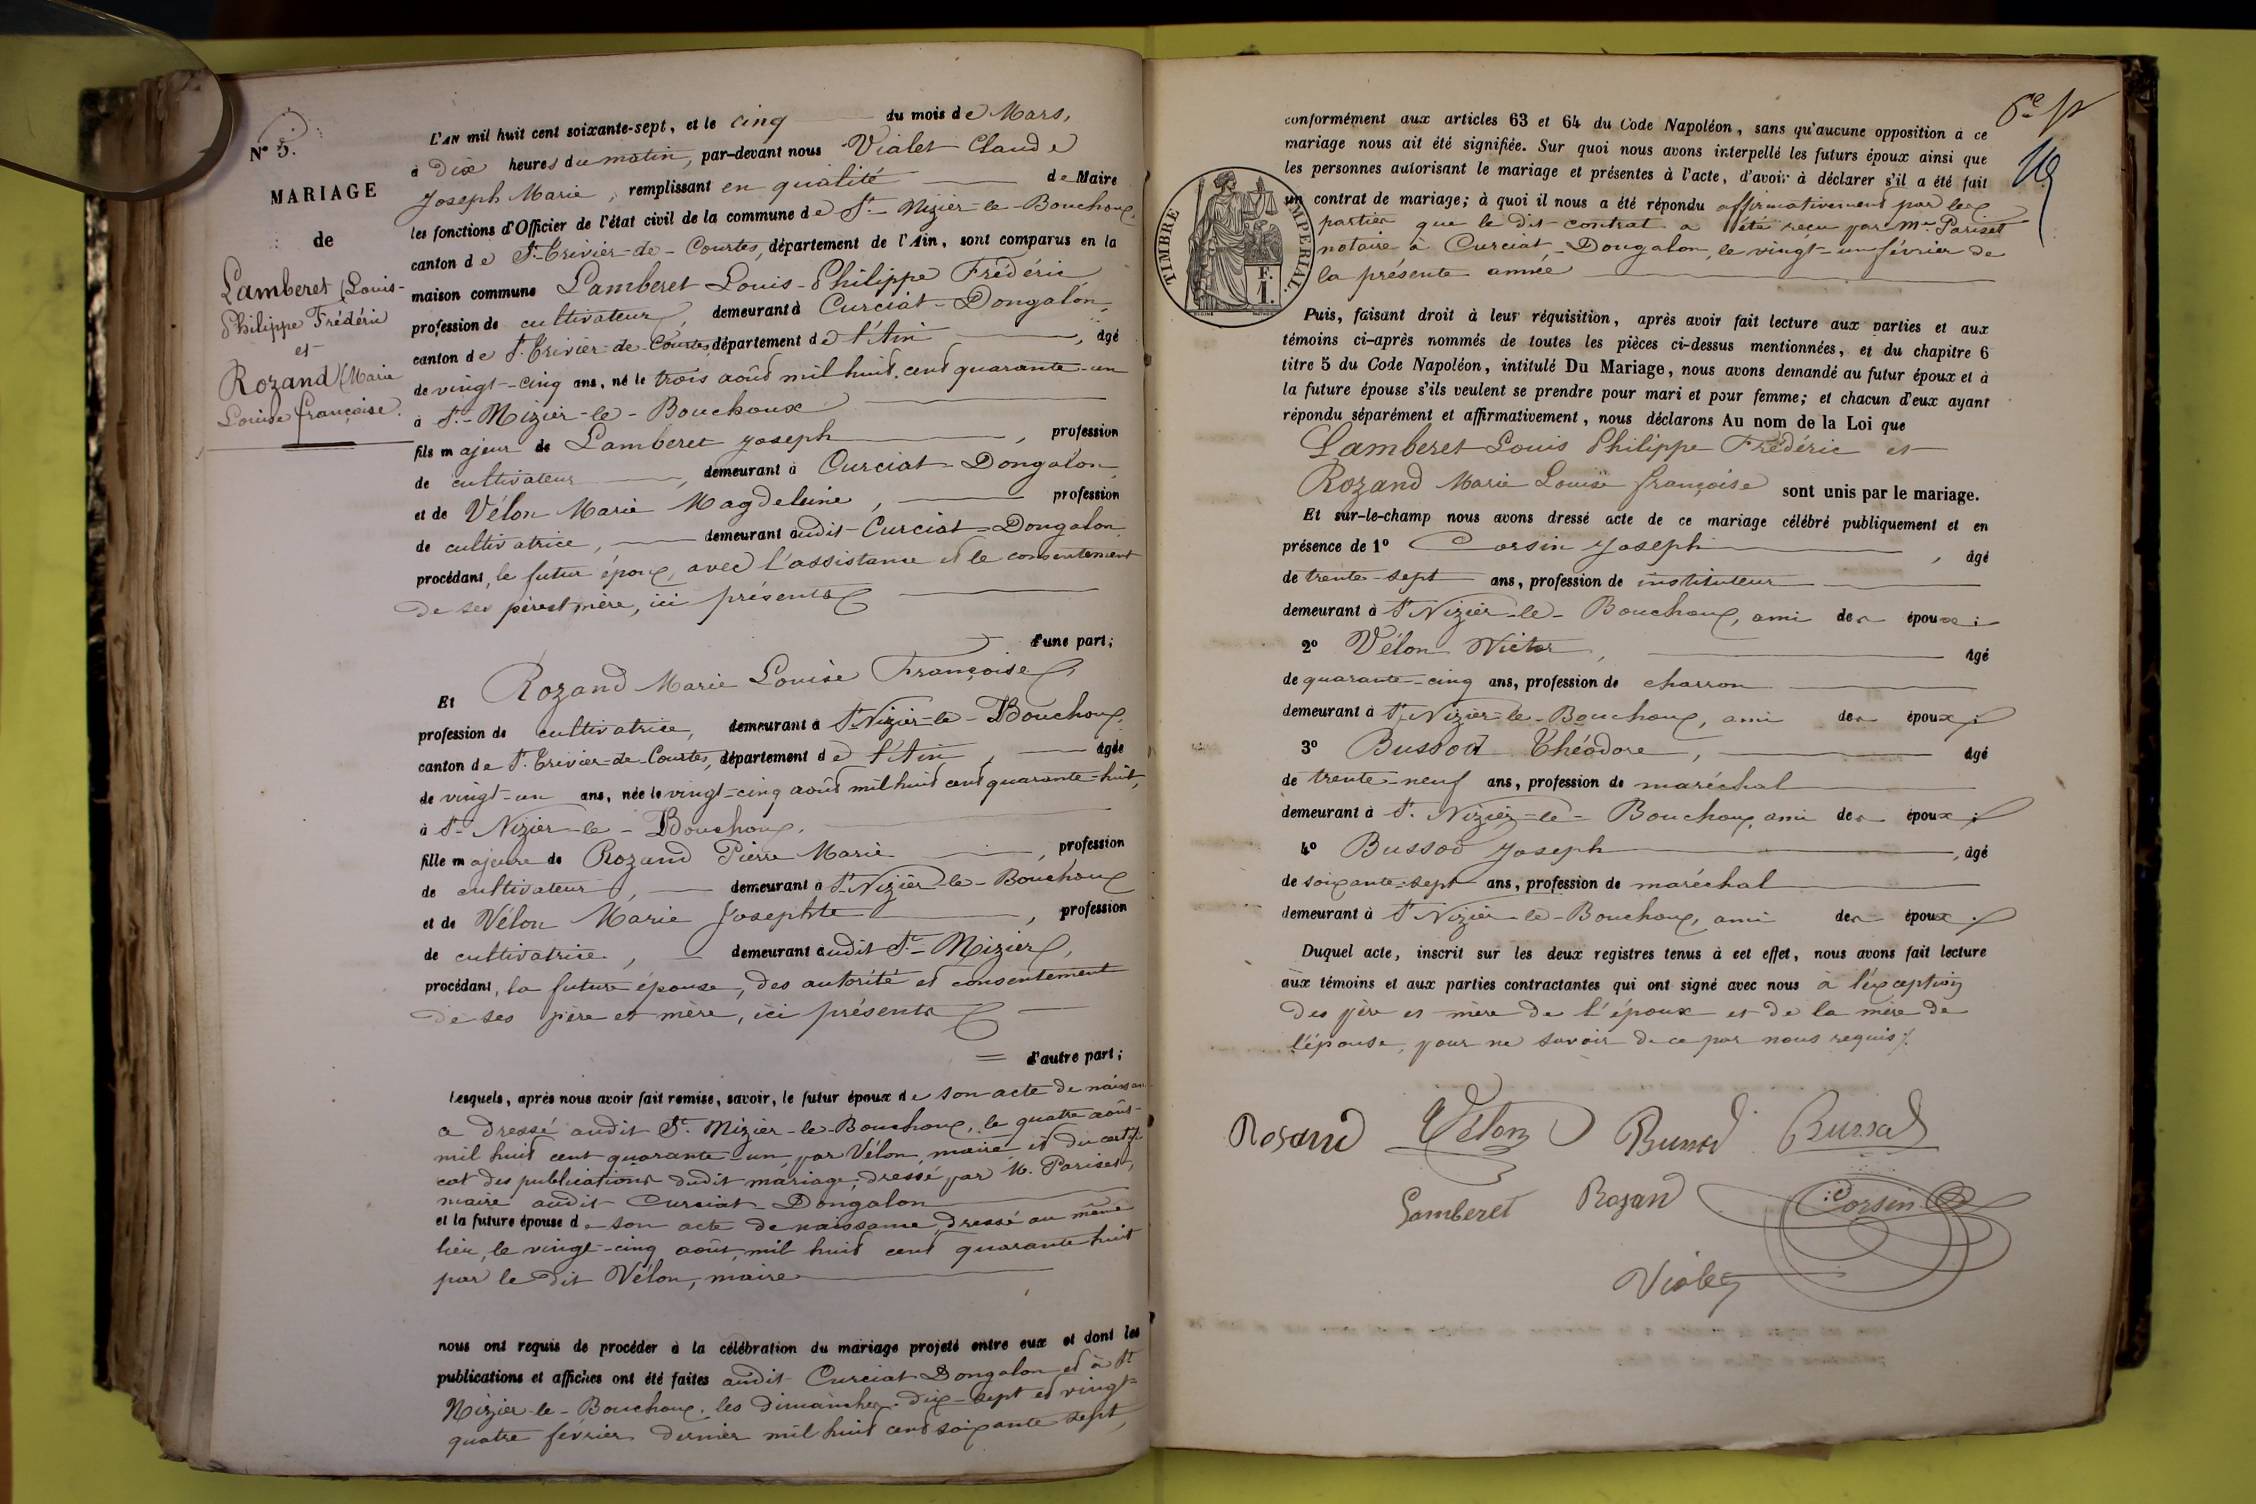 N° 5.
MARIAGE
de
Lamberet (Louis-
Philippe Frédéric
et
Rozand (Marie
Louise françoise.
L'AN mil huit cent soixante-sept, et le cinq du mois de Mars,
à Dix heures du matin, par-devant nous Vialet Claude
Joseph Marie, remplissant en qualité de Maire
les fonctions d'Officier de l'état civil de la commune de St-Nizier-le-Bouchoux,
canton de St-Trivier-de-Courtes, département de l'Ain, sont comparus en la
maison commune Lamberet Louis-Philippe Frédéric
profession de cultivateur, demeurant à Curciat-Dongalon
canton de St-Trivier-de-Courtes, département de l'Ain, âgé
de vingt-cinq ans, né le trois août mil huit cent quarante-un
à St-Nizier-le-Bouchoux
fils majeur de Lamberet Joseph, profession
de cultivateur, demeurant à Curciat-Dongalon
et de Vélon Marie Magdeleine, profession
de cultivatrice, demeurant audit Curciat-Dongalon
procédant, le futur époux, avec l'assistance et le consentement
de ses père et mère, ici présents
d'une part;
Et Rozand Marie Louise Françoise
profession de cultivatrice, demeurant à St Nizier-le-Bouchoux,
canton de St-Trivier-de-Courtes, département de l'Ain, âgée
de vingt-un ans, née le vingt-cinq août mil huit cent quarante-huit,
à St-Nizier-le-Bouchoux,
fille majeure de Rozand Pierre Marie, profession
de cultivateur, demeurant à St Nizier-le-Bouchoux
et de Vélon Marie Josephte, profession
de cultivatrice, demeurant audit St-Nizier,
procédant, la future épouse, des autorité et consentement
de ses père et mère, ici présents
d'autre part;
Lesquels, après nous avoir fait remise, savoir, le futur époux de son acte de naissan
a dressé audit St. Nizier-le-Bouchoux, le quatre août
mil huit cent quarante-un, par Vélon, maire et du certifi
cat des publications dudit mariage, dressé par M. Pariset,
maire audit Curciat-Dongalon
et la future épouse de son acte de naissance, dressé au même
lieu, le vingt-cinq août mil huit cent quarante huit
par le dit Vélon, maire
nous ont requis de procéder à la célébration du mariage projeté entre eux et dont les
publications et affiches ont été faites audit Curciat Dongalon et à St
Nizier-le-Bouchoux, les dimanches dix-sept et vingt-
quatre février dernier mil huit cent soixante sept,
TIMBRE IMPERIAL.
conformément aux articles 63 et 64 du Code Napoléon, sans qu'aucune opposition à ce
mariage nous ait été signifiée. Sur quoi nous avons interpellé les futurs époux ainsi que
les personnes autorisant le mariage et présentes à l'acte, d'avoir à déclarer s'il a été fait
un contrat de mariage; à quoi il nous a été répondu affirmativement par les
parties que le dit contrat a été reçu par Me Pariset
notaire à Curciat-Dongalon, le vingt-un février de
la présente année
Puis, faisant droit à leur réquisition, après avoir fait lecture aux parties et aux
témoins ci-après nommés de toutes les pièces ci-dessus mentionnées, et du chapitre 6
titre 5 du Code Napoléon, intitulé Du Mariage, nous avons demandé au futur époux et à
la future épouse s'ils veulent se prendre pour mari et pour femme; et chacun d'eux ayant
répondu séparément et affirmativement, nous déclarons Au nom de la Loi que
Lamberet Louis Philippe Frédéric et
Rozand Marie Louise françoise sont unis par le mariage.
Et sur-le-champ nous avons dressé acte de ce mariage célébré publiquement et en
présence de 1° Corsin Joseph, âgé
de trente-sept ans, profession de instituteur
demeurant à St Nizier-le-Bouchoux, ami des époux;
2° Vélon Victor, âgé
de quarante-cinq ans, profession de charron
demeurant à St Nizier-le-Bouchoux, ami des époux;
3° Bussod Théodore, âgé
de trente-neuf ans, profession de maréchal
demeurant à St. Nizier-le-Bouchoux, ami des époux;
4° Bussod Joseph, âgé
de soixante-sept ans, profession de maréchal
demeurant à St Nizier-le-Bouchoux, ami des époux.
Duquel acte, inscrit sur les deux registres tenus à cet effet, nous avons fait lecture
aux témoins et aux parties contractantes qui ont signé avec nous à l'exception
des père et mère de l'époux et de la mère de
l'épouse, pour ne savoir de ce par nous requis.
Rosand Vélon Bussod Bussod
Lamberet Rozand Corsin
Vialet